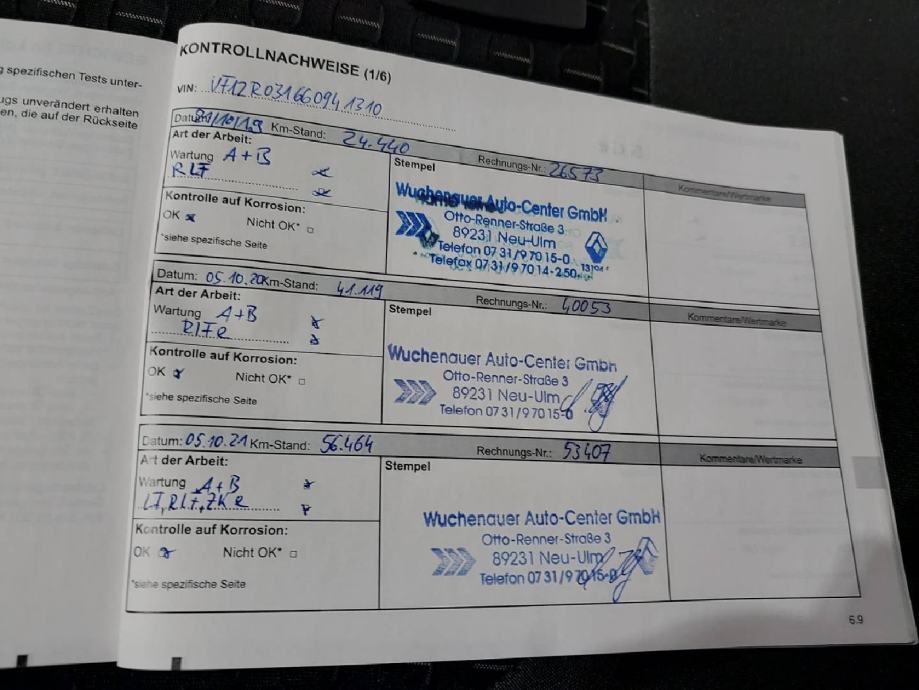 g spezifischen Tests unter-
ugs unverändert erhalten
en, die auf der Rückseite
KONTROLLNACHWEISE (1/6)
VIN: VF12R031660941310
Datum: Km-Stand: 24.440 Rechnungs-Nr.: 26573 Kommentare/Wertmarke
Art der Arbeit:
Wartung A+B
RLF
Kontrolle auf Korrosion:
OK Nicht OK*
*siehe spezifische Seite
Stempel
Wuchenauer Auto-Center GmbH
Otto-Renner-Straße 3
89231 Neu-Ulm
Telefon 07 31/9 70 15-0
Telefax 07 31/9 70 14-250
Datum: 05.10.20 Km-Stand: 41.119 Rechnungs-Nr.: 40053 Kommentare/Wertmarke
Art der Arbeit:
Wartung A+B
Kontrolle auf Korrosion:
OK Nicht OK*
*siehe spezifische Seite
Stempel
Wuchenauer Auto-Center GmbH
Otto-Renner-Straße 3
89231 Neu-Ulm
Telefon 07 31/9 70 15-0
Datum: 05.10.21 Km-Stand: 56.464 Rechnungs-Nr.: 53407 Kommentare/Wertmarke
Art der Arbeit:
Wartung A+B
Kontrolle auf Korrosion:
OK Nicht OK*
*siehe spezifische Seite
Stempel
Wuchenauer Auto-Center GmbH
Otto-Renner-Straße 3
89231 Neu-Ulm
Telefon 07 31/9 70 15-0
6.9